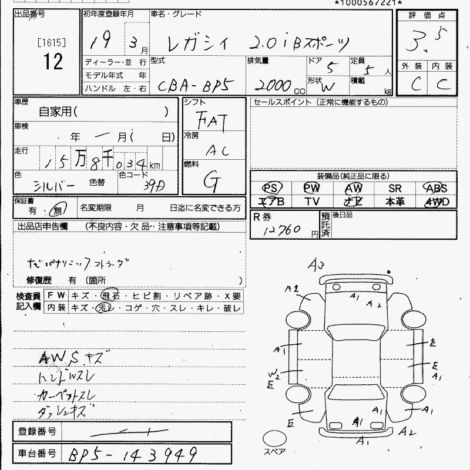 *1000567221*
出品番号
[1615]
12
初年度登録年月
19年3月
車名・グレード
レガシィ 2.0iBスポーツ
評価点
3.5
ディーラー・並行
モデル年式 年
ハンドル 左・右
型式
CBA-BP5
排気量
2000cc
ドア
5
形状
W
定員
5人
積載
kg
外装 内装
C C
車歴
自家用( )
車検
年 ー 月( 日
走行
15万8千034km
色
シルバー
色替
色コード
39D
シフト
FAT
冷房
AC
燃料
G
セールスポイント (正常に機能するもの)
装備品(純正品に限る)
PS PW AW SR ABS
エアB TV ナビ 本革 4WD
保証書
有・無
名変期限 月 日迄に名変できる方
R券
12760
預託済
後日品
出品店申告欄 (不良内容・欠品・注意事項等記載)
修復歴 有 (箇所 )
検査員記入欄
FW キズ・飛石・ヒビ割・リペア跡・X要
内装 キズ・汚レ・コゲ・穴・スレ・キレ・破レ
AWSキズ
ハンドルスレ
カーペットスレ
ダッシュキズ
A3
A2 A2
A1 A1 E
W2 A1 E
E
E A1 A1 A1
A2
スペア
登録番号
車台番号 BP5-143949